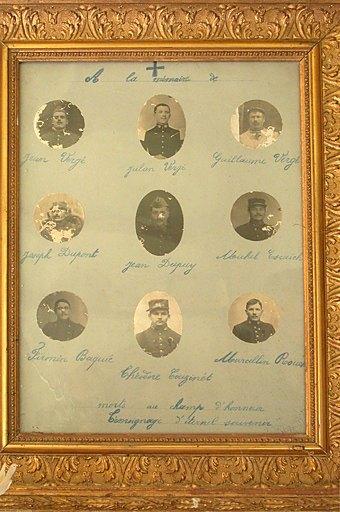 A la mémoire de
Jean Vergé
Julan Vergé
Guillaume Vergé
Joseph Dupont
Jean Dupuy
Michel
Firmin Baquié
Théodore
Marcellin
morts au champ d'honneur
Témoignage d'éternel souvenir